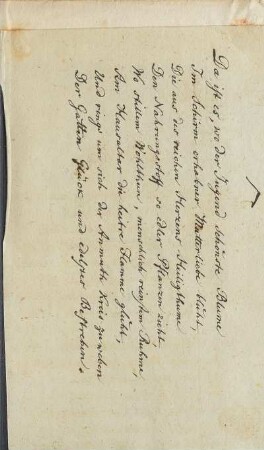 Da ist es, wo der Tugend schönste Blume
Im Schirm erhabner Mutterliebe blüht,
Die aus des reichen Herzens Heiligthume
Den Nahrungsstoff so edler Pflanzen zieht,
Wo stillem Wohlthun, menschlich reinstem Ruhme,
Am Hausaltar die heitre Flamme glüht,
Und rings um sich der Anmuth Kreis zu weben
Der Gattin Glück und edelstes Bestreben.